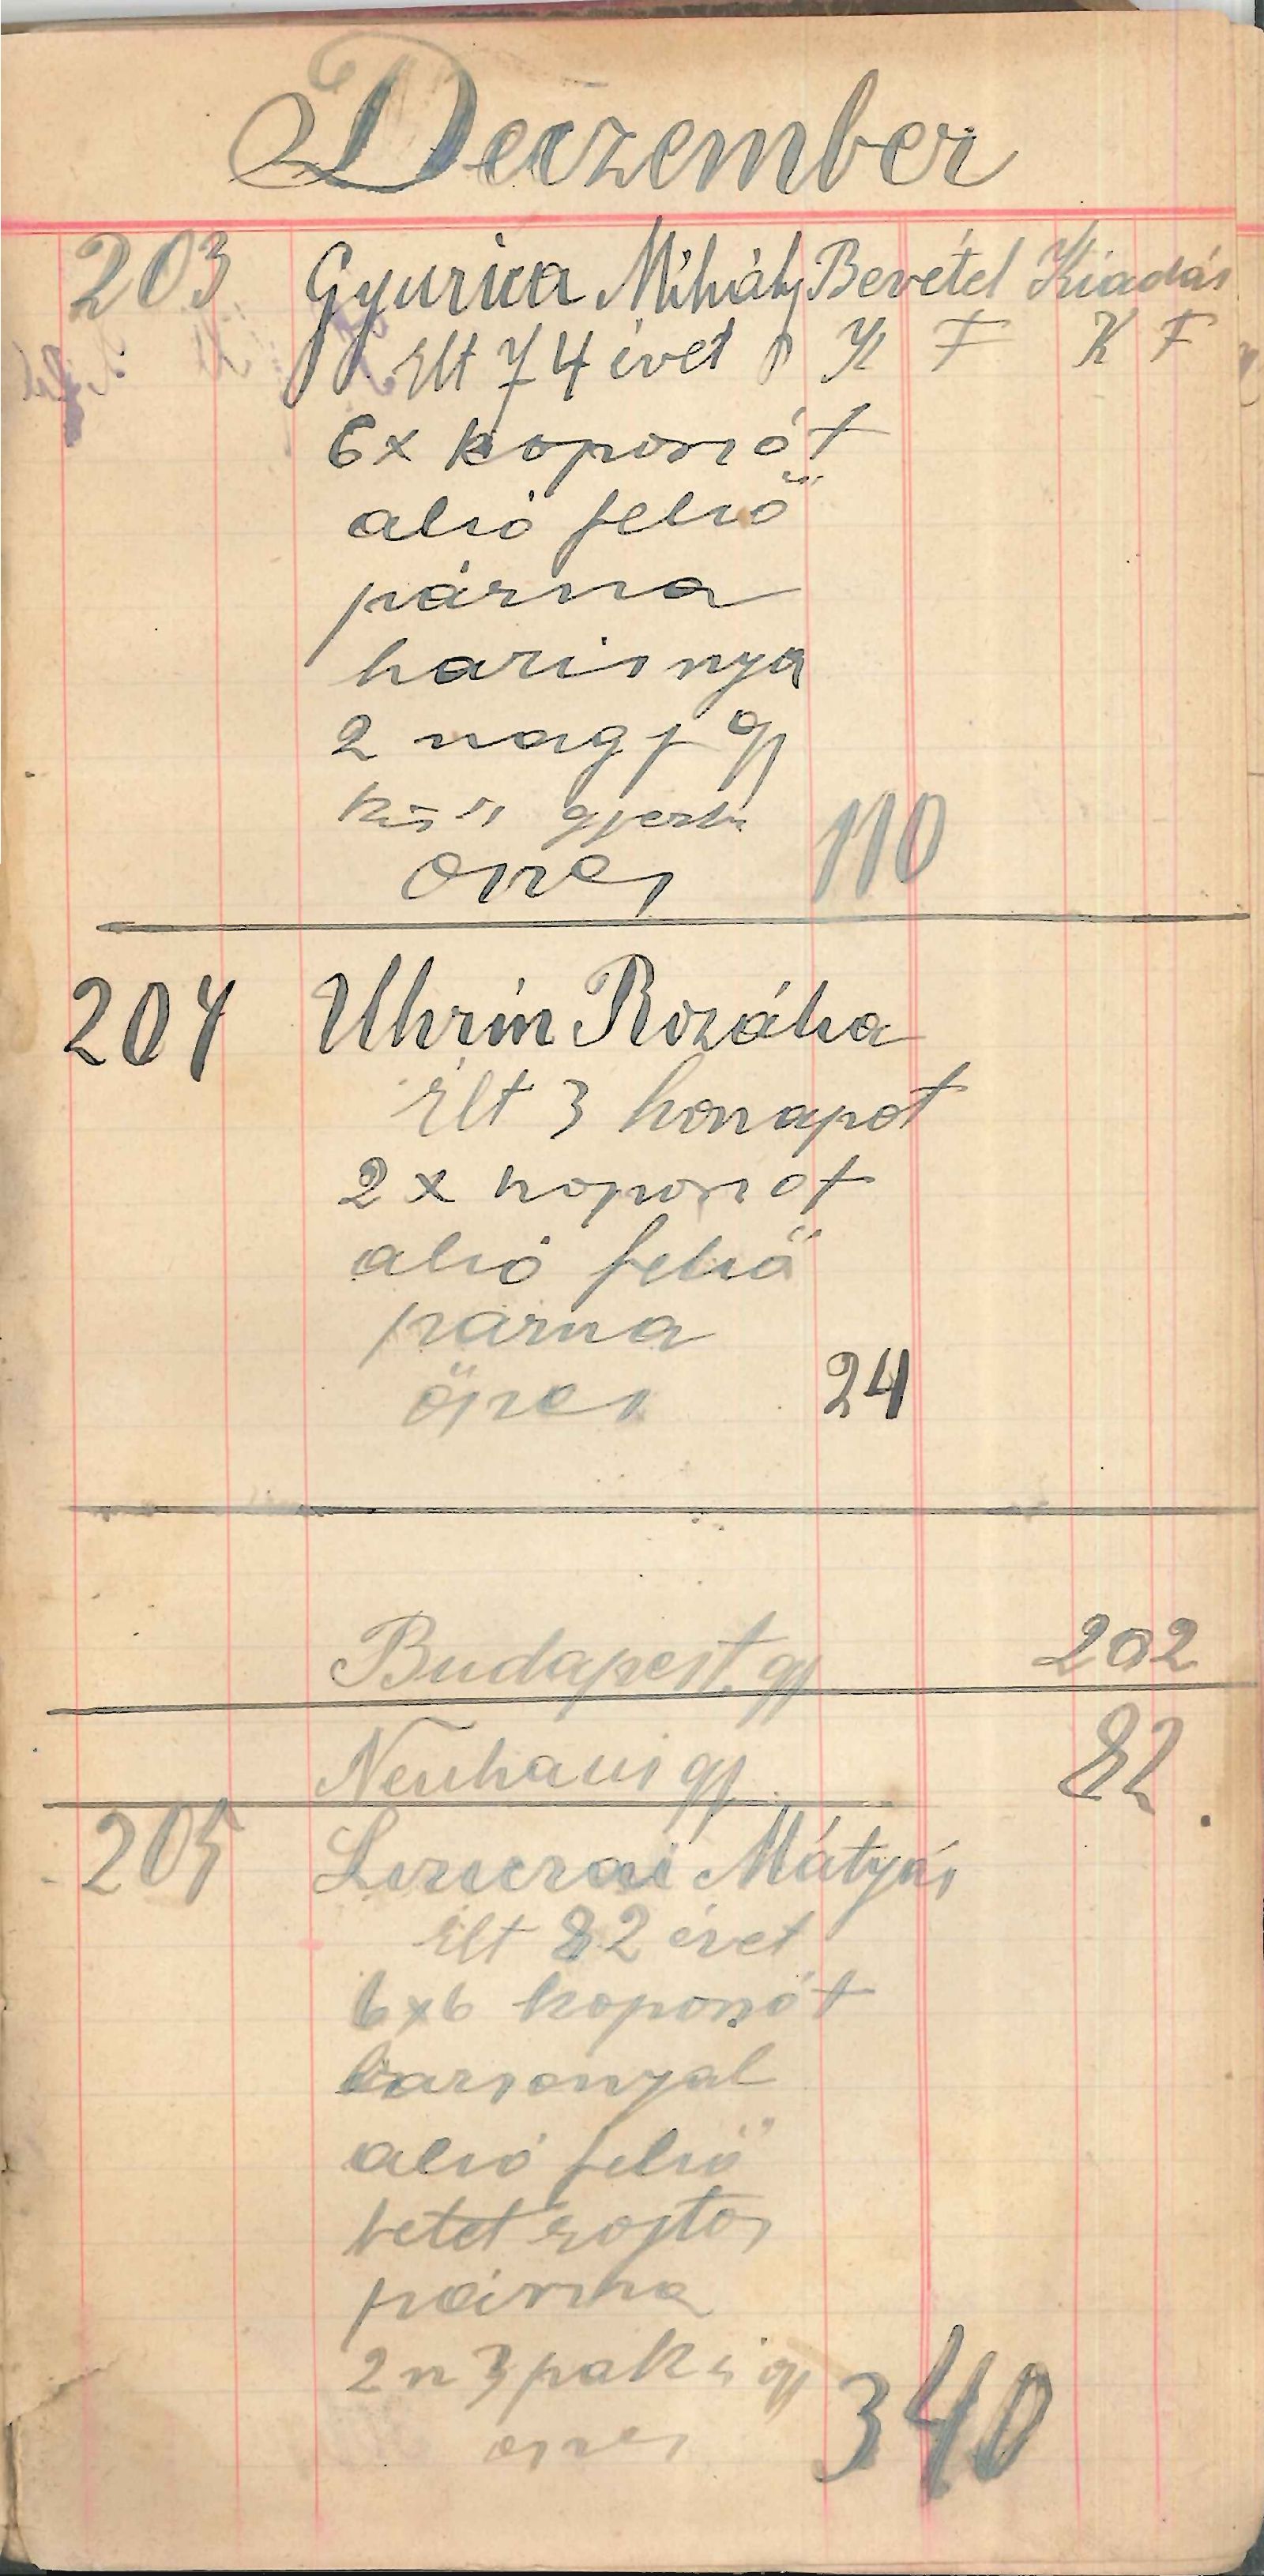 Deczember
203 Gyurica Mihály Bevétel Kiadás
élt 74 évet K F K F
6x koporsót
alsó felső
párna
harisnya
2 nagy gy
kis
össes 110
204 Uhrin Rozália
élt 3 honapot
2x koporsot
alsó felső
párna
össes 24
Budapest gy 202
Neuhaus gy 82
205 Mátyás
élt 82 évet
6x6 koporsót
barsonyal
alsó felső
tetet rojtos
párna
2 n 3 pak gy
össes 340